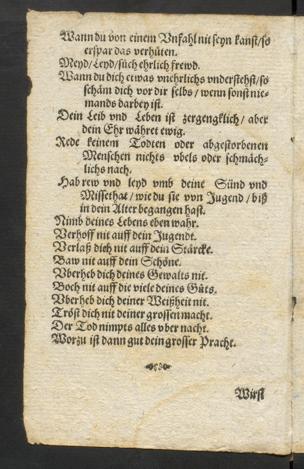 Wann du von einem Vnfahl nit seyn kanst/so
erspar das verhüten.
Meyd/Leyd/such ehrlich frewd.
Wann du dich etwas vnehrlichs vnderstehst/so
schäm dich vor dir selbs/wenn sonst nie-
mands darbey ist.
Dein Leib vnd Leben ist zergengklich/aber
dein Ehr währet ewig.
Rede keinem Todten oder abgestorbenen
Menschen nichts vbels oder schmäch-
lichs nach.
Hab rew vnd leyd vmb deine Sünd vnd
Missethat/wie du sie von Jugend/biß
in dein Alter begangen hast.
Nimb deines Lebens eben wahr.
Verhoff nit auff dein Jugendt.
Verlaß dich nit auff dein Stärcke.
Baw nit auff dein Schöne.
Vberheb dich deines Gewalts nit.
Boch nit auff die viele deines Güts.
Vberheb dich deiner Weißheit nit.
Tröst dich nit deiner grossen macht.
Der Tod nimpts alles vber nacht.
Worzu ist dann gut dein grosser Pracht.
Wirst